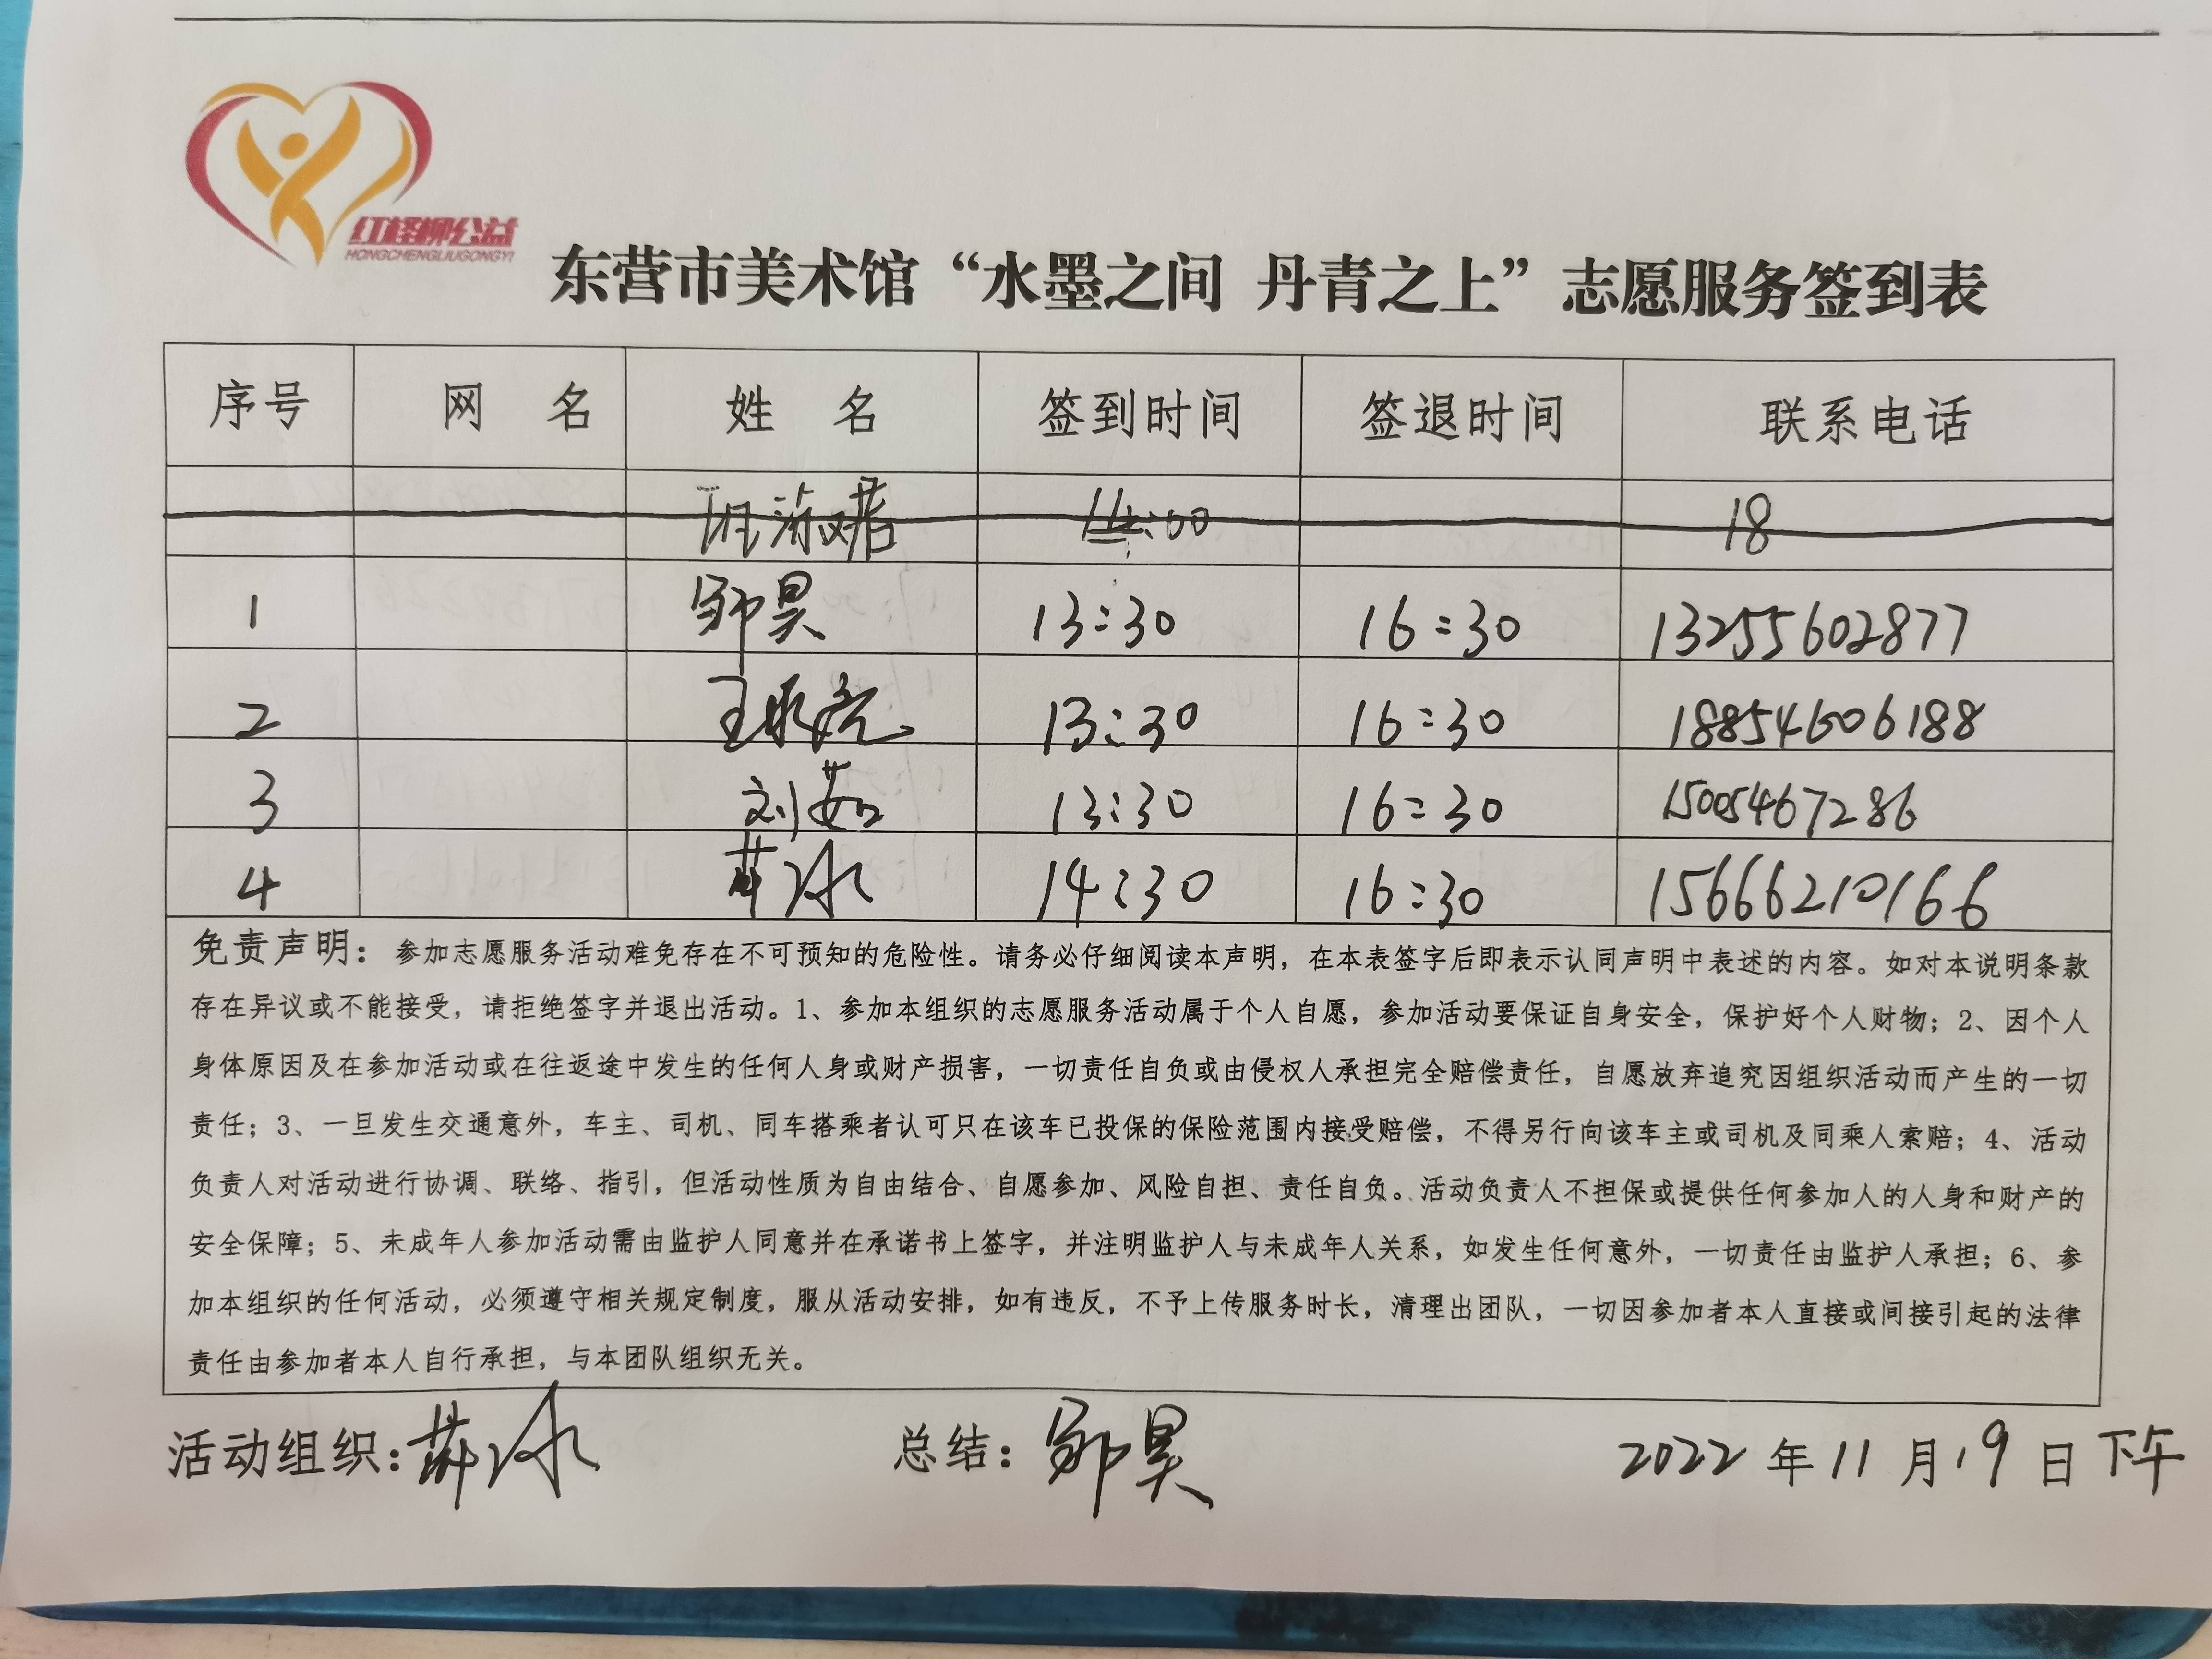 红柽柳公益
HONGCHENGLIUGONGYI
东营市美术馆“水墨之间 丹青之上”志愿服务签到表
序号 网 名 姓 名 签到时间 签退时间 联系电话
18
1 邹昊 13:30 16:30 13255602877
2 13:30 16:30 18854606188
3 刘茹 13:30 16:30 15005467286
4 14:30 16:30 15666210166
免责声明：参加志愿服务活动难免存在不可预知的危险性。请务必仔细阅读本声明，在本表签字后即表示认同声明中表述的内容。如对本说明条款
存在异议或不能接受，请拒绝签字并退出活动。1、参加本组织的志愿服务活动属于个人自愿，参加活动要保证自身安全，保护好个人财物；2、因个人
身体原因及在参加活动或在往返途中发生的任何人身或财产损害，一切责任自负或由侵权人承担完全赔偿责任，自愿放弃追究因组织活动而产生的一切
责任；3、一旦发生交通意外，车主、司机、同车搭乘者认可只在该车已投保的保险范围内接受赔偿，不得另行向该车主或司机及同乘人索赔；4、活动
负责人对活动进行协调、联络、指引，但活动性质为自由结合、自愿参加、风险自担、责任自负。活动负责人不担保或提供任何参加人的人身和财产的
安全保障；5、未成年人参加活动需由监护人同意并在承诺书上签字，并注明监护人与未成年人关系，如发生任何意外，一切责任由监护人承担；6、参
加本组织的任何活动，必须遵守相关规定制度，服从活动安排，如有违反，不予上传服务时长，清理出团队，一切因参加者本人直接或间接引起的法律
责任由参加者本人自行承担，与本团队组织无关。
活动组织： 总结：邹昊 2022年11月19日下午